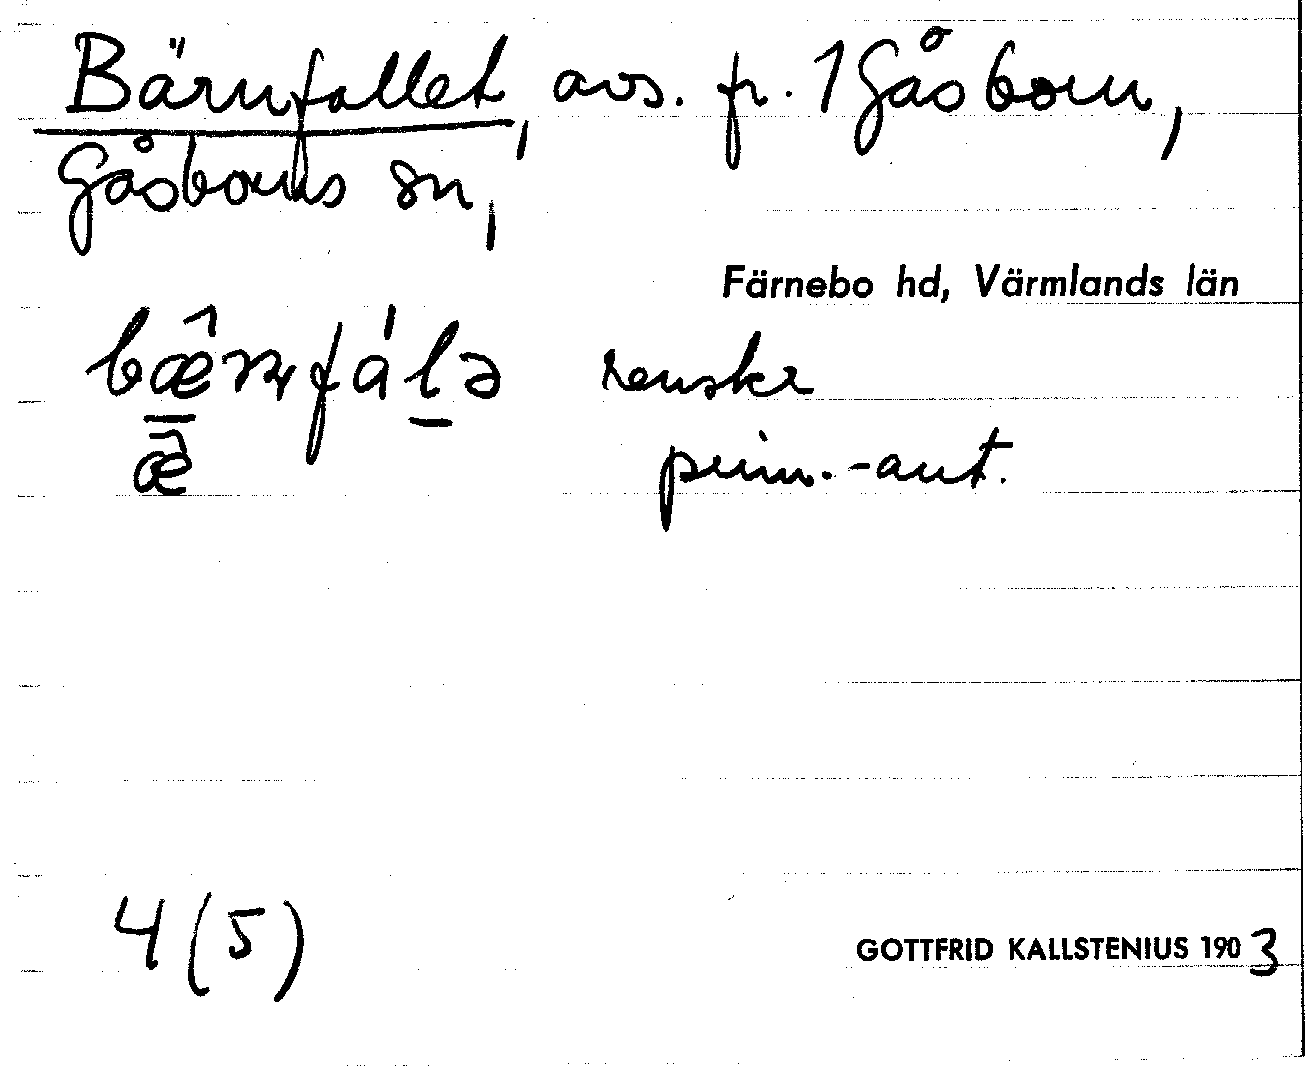 Bärnfallet, avs. fr. 1 Gåsborn,
Gåsborns sn,
Färnebo hd, Värmlands län
bæ̂rnfálə renskr
æ̂ prim.-ant.
4 (5)
GOTTFRID KALLSTENIUS 1903